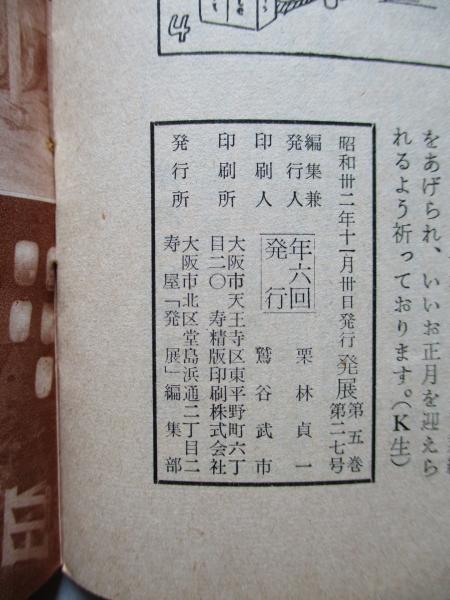 4
をあげられ、いいお正月を迎えら
れるよう祈っております。（K生）
昭和卅二年十一月卅日発行 発展 第五巻 第二七号
編集兼発行人 栗林貞一
年六回発行
印刷人 鷲谷武市
印刷所 大阪市天王寺区東平野町六丁
目二〇 寿精版印刷株式会社
発行所 大阪市北区堂島浜通二丁目二
寿屋「発展」編集部